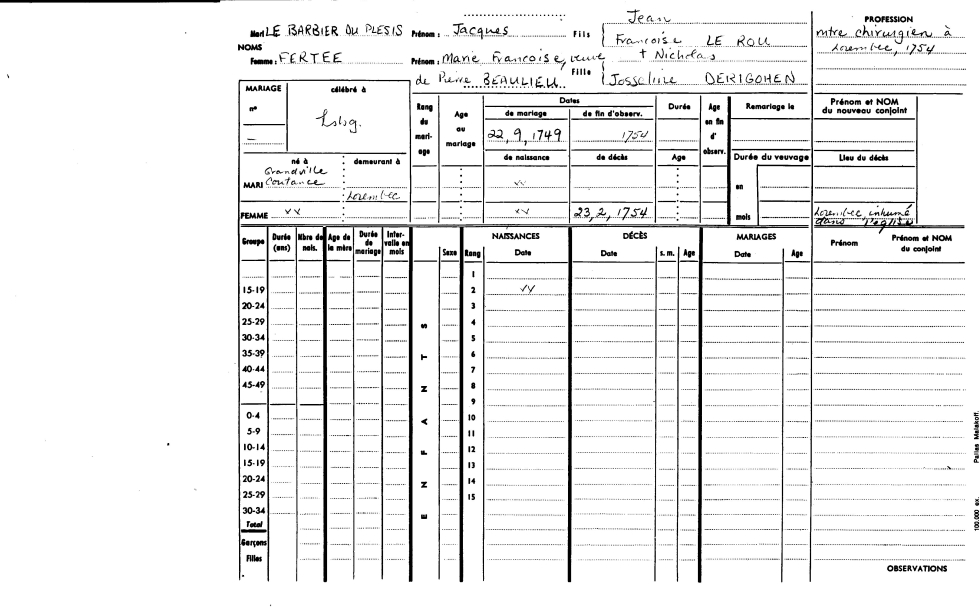 Jean
PROFESSION
Mari LE BARBIER DU PLESIS Prénom : Jacques Fils Francoise LE ROU mtre chirurgien à
NOMS Lorembec, 1754
Femme : FERTEE Prénom : Marie Francoise, veuve Fille † Nicholas
de Pierre BEAULIEU Josseline DERIGOHEN
MARIAGE célébré à Rang du mari-age Age au mariage Dates Durée Age en fin d' observ. Remariage le Prénom et NOM du nouveau conjoint
n° Lsbg. de mariage de fin d'observ.
— 22, 9, 1749 1754
né à demeurant à de naissance de décès Age Durée du veuvage Lieu du décès
MARI Grandville Coutance Lorembec vv en
FEMME vv vv 23, 2, 1754 mois Lorembec, inhumé dans l'église
Groupe Durée (ans) Nbre de nais. Age de la mère Durée de mariage Inter-valle en mois Sexe Rang NAISSANCES Date DÉCÈS Date s. m. Age MARIAGES Date Age Prénom Prénom et NOM du conjoint
ENFANTS
1
15-19 2 vv
20-24 3
25-29 4
30-34 5
35-39 6
40-44 7
45-49 8
9
0-4 10
5-9 11
10-14 12
15-19 13
20-24 14
25-29 15
30-34
Total
Garçons
Filles
OBSERVATIONS
100.000 ex. Pallas Malakoff.